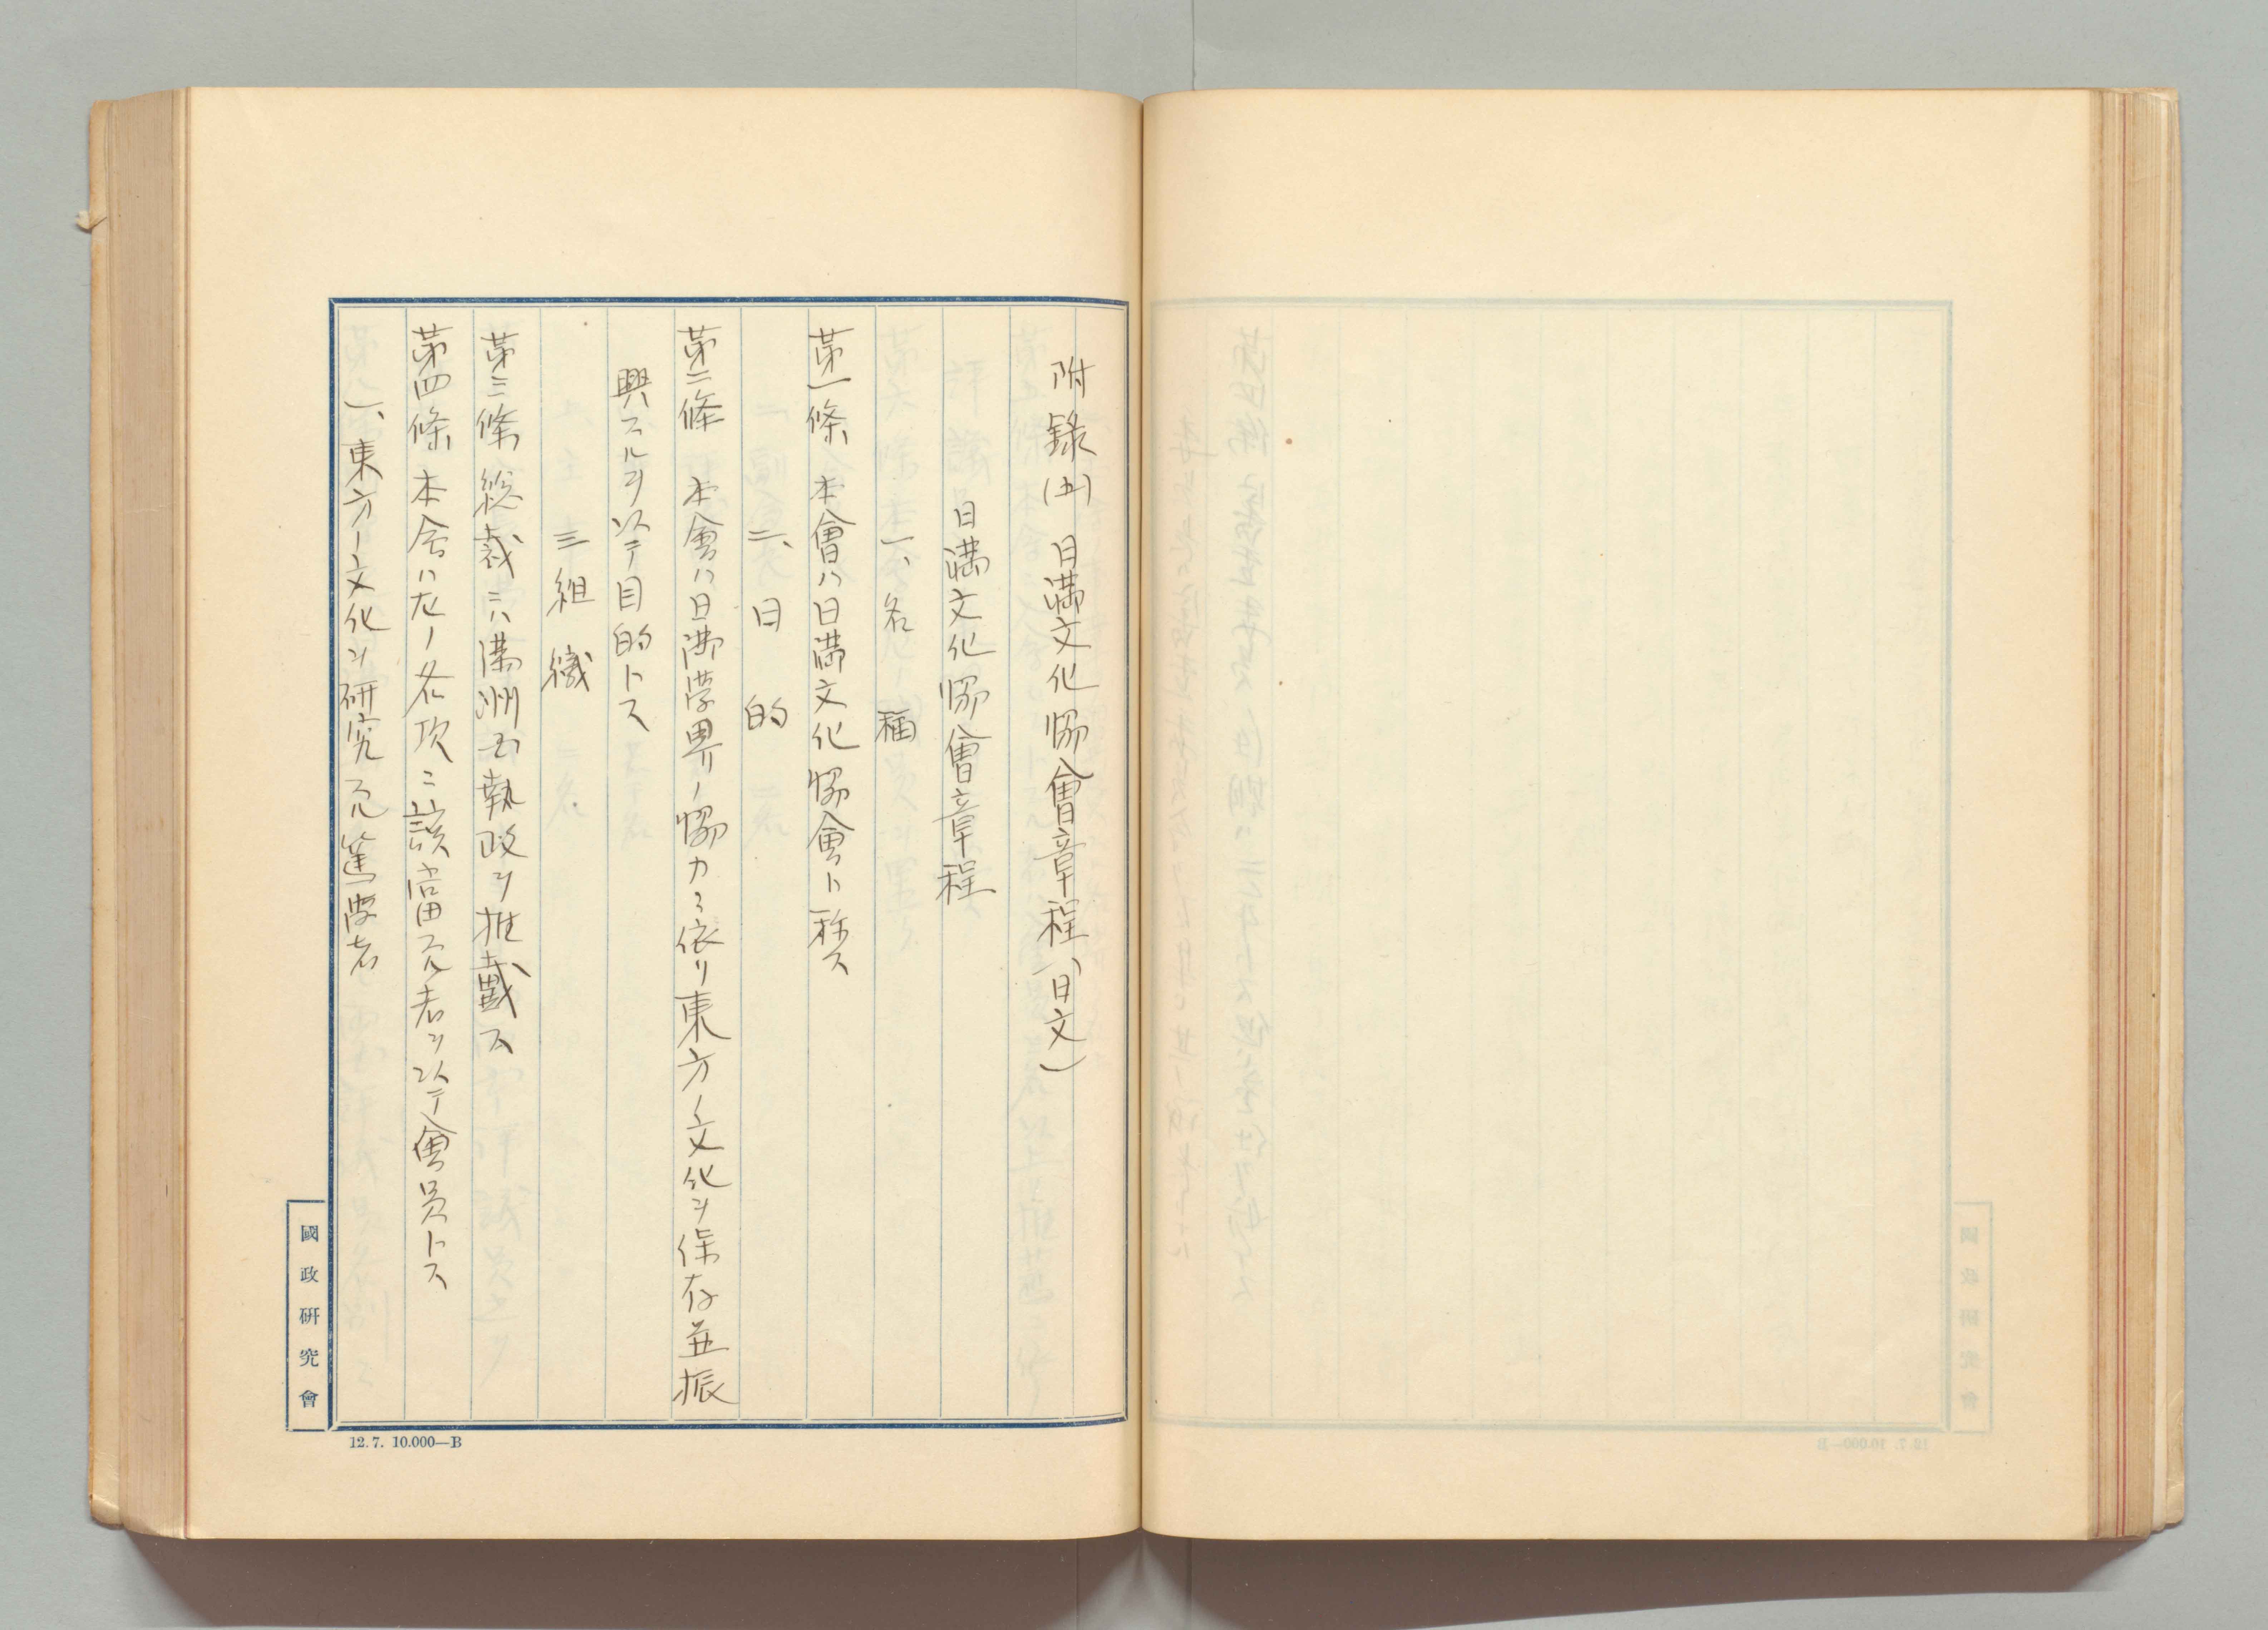 附錄(五) 日満文化協會章程(日文)
日満文化協會章程
一、名稱
第一條 本會ハ日満文化協會ト称ス
二、目的
第二條 本會ハ日満学界ノ協力ニ依リ東方ノ文化ヲ保存並振
興スルヲ以テ目的トス
三 組織
第三條 総裁ニハ満洲国執政ヲ推戴ス
第四條 本会ハ左ノ各項ニ該當スル者ヲ以テ會員トス
一、東方ノ文化ヲ研究スル篤学者
國政研究會
12.7. 10.000—B